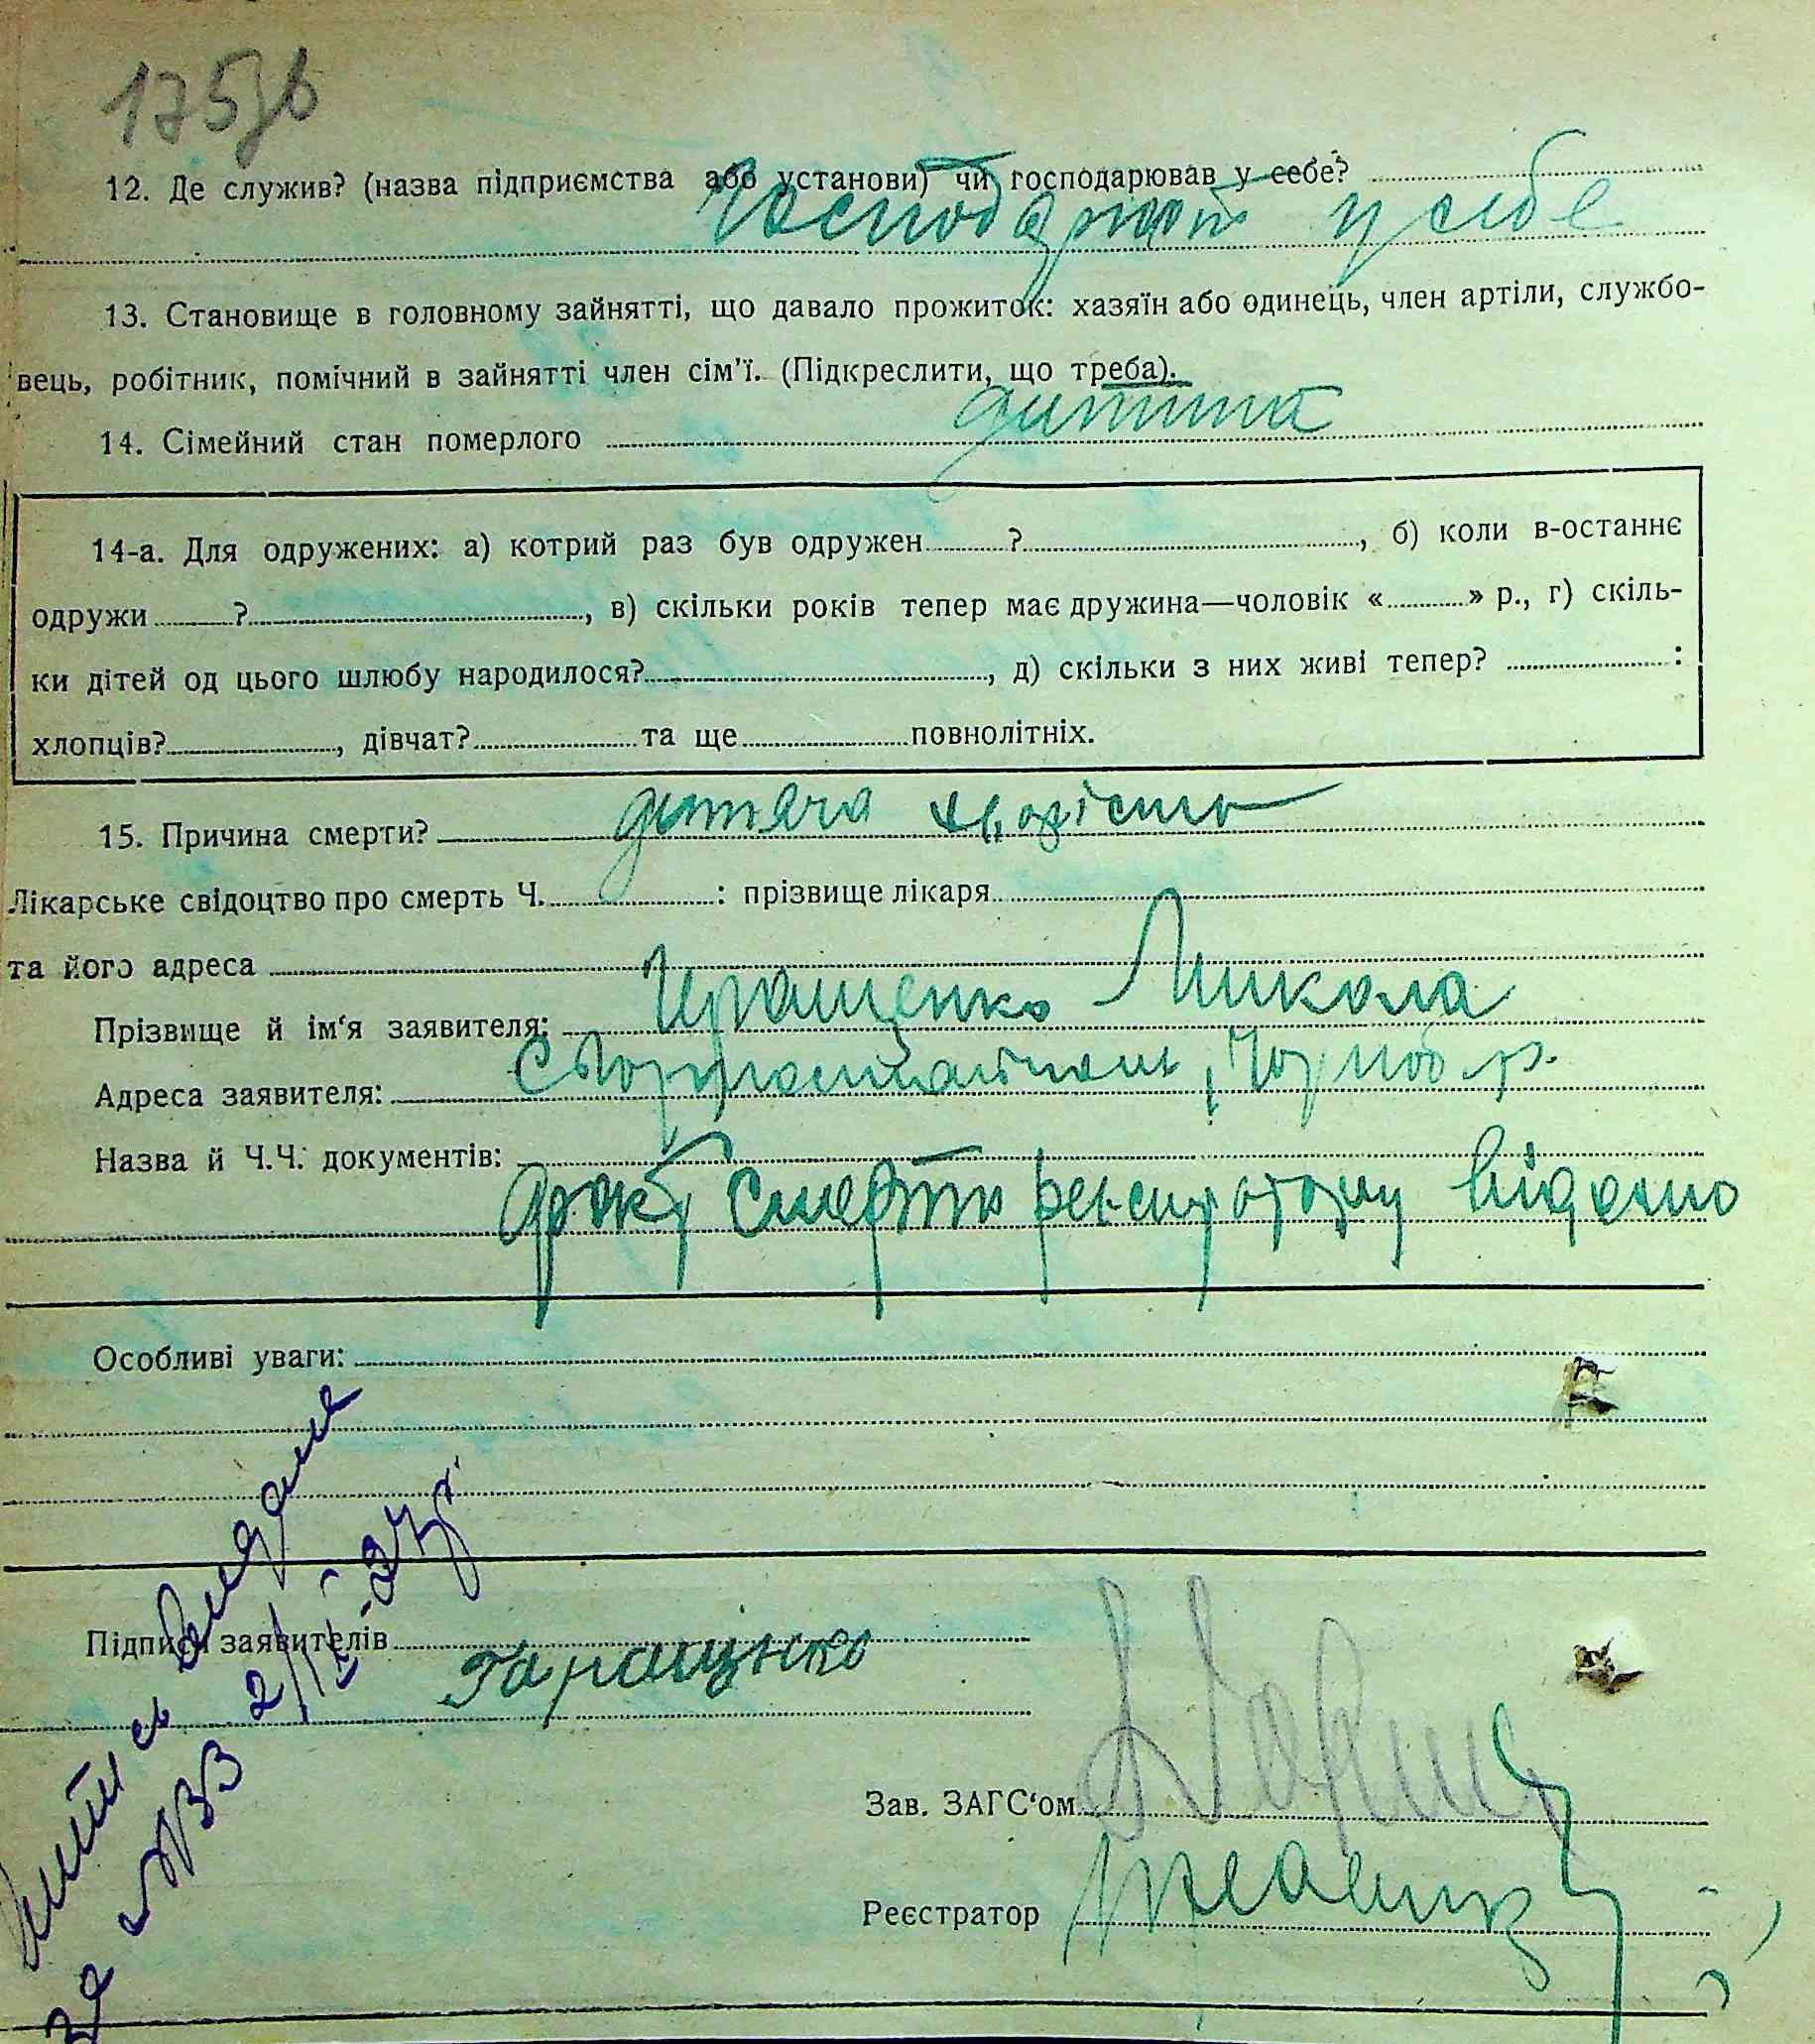 175зв
12. Де служив? (назва підприємства або установи) чи господарював у себе?
Господарют у себе
13. Становище в головному зайнятті, що давало прожиток: хазяїн або одинець, член артіли, службо-
вець, робітник, помічний в зайнятті член сім'ї. (Підкреслити, що треба).
14. Сімейний стан померлого дитина
14-а. Для одружених: а) котрий раз був одружен ?, б) коли в-останнє
одружи ?, в) скільки років тепер має дружина—чоловік « » р., г) скіль-
ки дітей од цього шлюбу народилося?, д) скільки з них живі тепер? :
хлопців?, дівчат? та ще повнолітніх.
15. Причина смерти? дитяча
Лікарське свідоцтво про смерть Ч. : прізвище лікаря
та його адреса
Прізвище й ім'я заявителя: Микола
Адреса заявителя:
Назва й Ч.Ч. документів:
смерть видано
Особливі уваги:
Підписи заявителів Геращенко
Зав. ЗАГС'ом
Реєстратор
видане
за АВВ